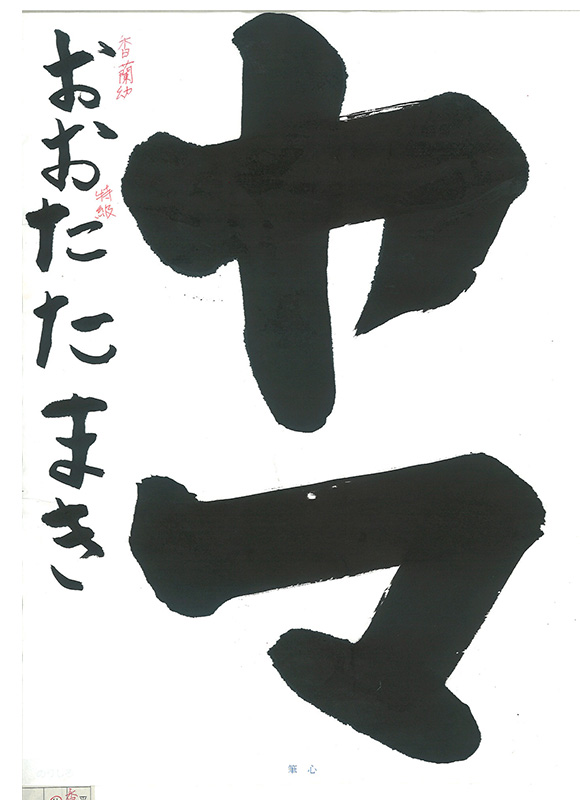 ヤマ
香蘭幼
特級
おおたたまき
心筆